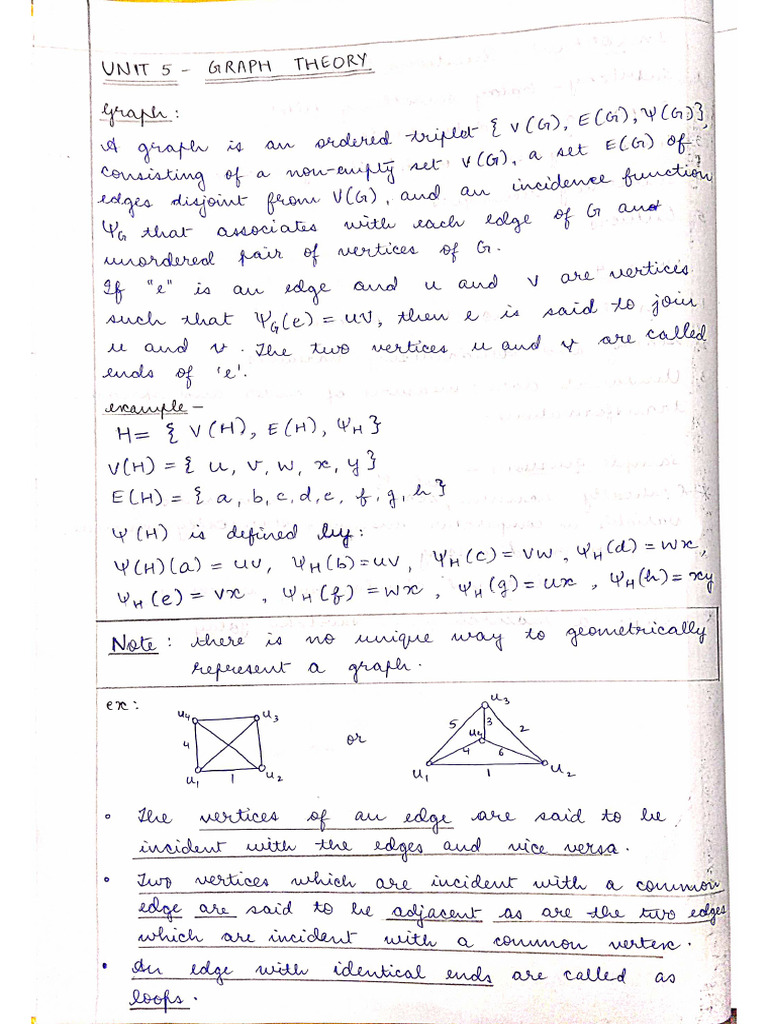 UNIT 5 - GRAPH THEORY
Graph:
A graph is an ordered triplet { V(G), E(G), Ψ(G)},
consisting of a non-empty set V(G), a set E(G) of
edges disjoint from V(G), and an incidence function
Ψ_G that associates with each edge of G and
unordered pair of vertices of G.
If "e" is an edge and u and v are vertices
such that Ψ_G(e) = uv, then e is said to join
u and v. The two vertices u and v are called
ends of 'e'.
example -
H = { V(H), E(H), Ψ_H }
V(H) = { u, v, w, x, y }
E(H) = { a, b, c, d, e, f, g, h }
Ψ(H) is defined by:
Ψ(H)(a) = uv, Ψ_H(b) = uv, Ψ_H(c) = vw, Ψ_H(d) = wx,
Ψ_H(e) = vx, Ψ_H(f) = wx, Ψ_H(g) = ux, Ψ_H(h) = xy
Note: there is no unique way to geometrically
represent a graph.
ex:
u4 u3
4
u1 1 u2
or
u3
5 3 2
u4
4 6
u1 1 u2
• The vertices of an edge are said to be
incident with the edges and vice versa.
• Two vertices which are incident with a common
edge are said to be adjacent as are the two edges
which are incident with a common vertex.
• An edge with identical ends are called as
loops.